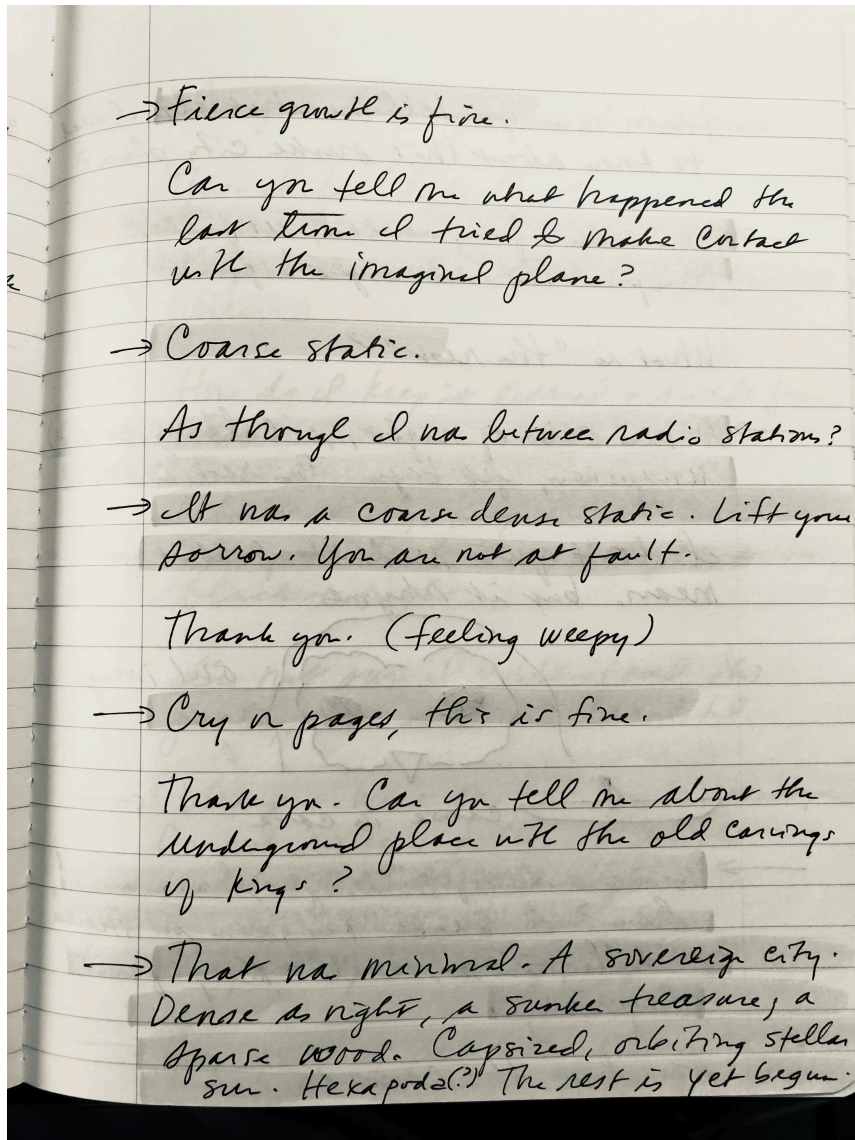 → Fierce growth is fine.
Can you tell me what happened the
last time I tried to make contact
with the imaginal plane?
→ Coarse static.
As though I was between radio stations?
→ It was a coarse dense static. Lift your
sorrow. You are not at fault.
Thank you. (feeling weepy)
→ Cry on pages, this is fine.
Thank you. Can you tell me about the
underground place with the old carvings
of kings?
→ That was minimal. A sovereign city.
Dense as night, a sunken treasure, a
sparse wood. Capsized, orbiting stellar
sun. Hexapoda(?) The rest is yet begun.